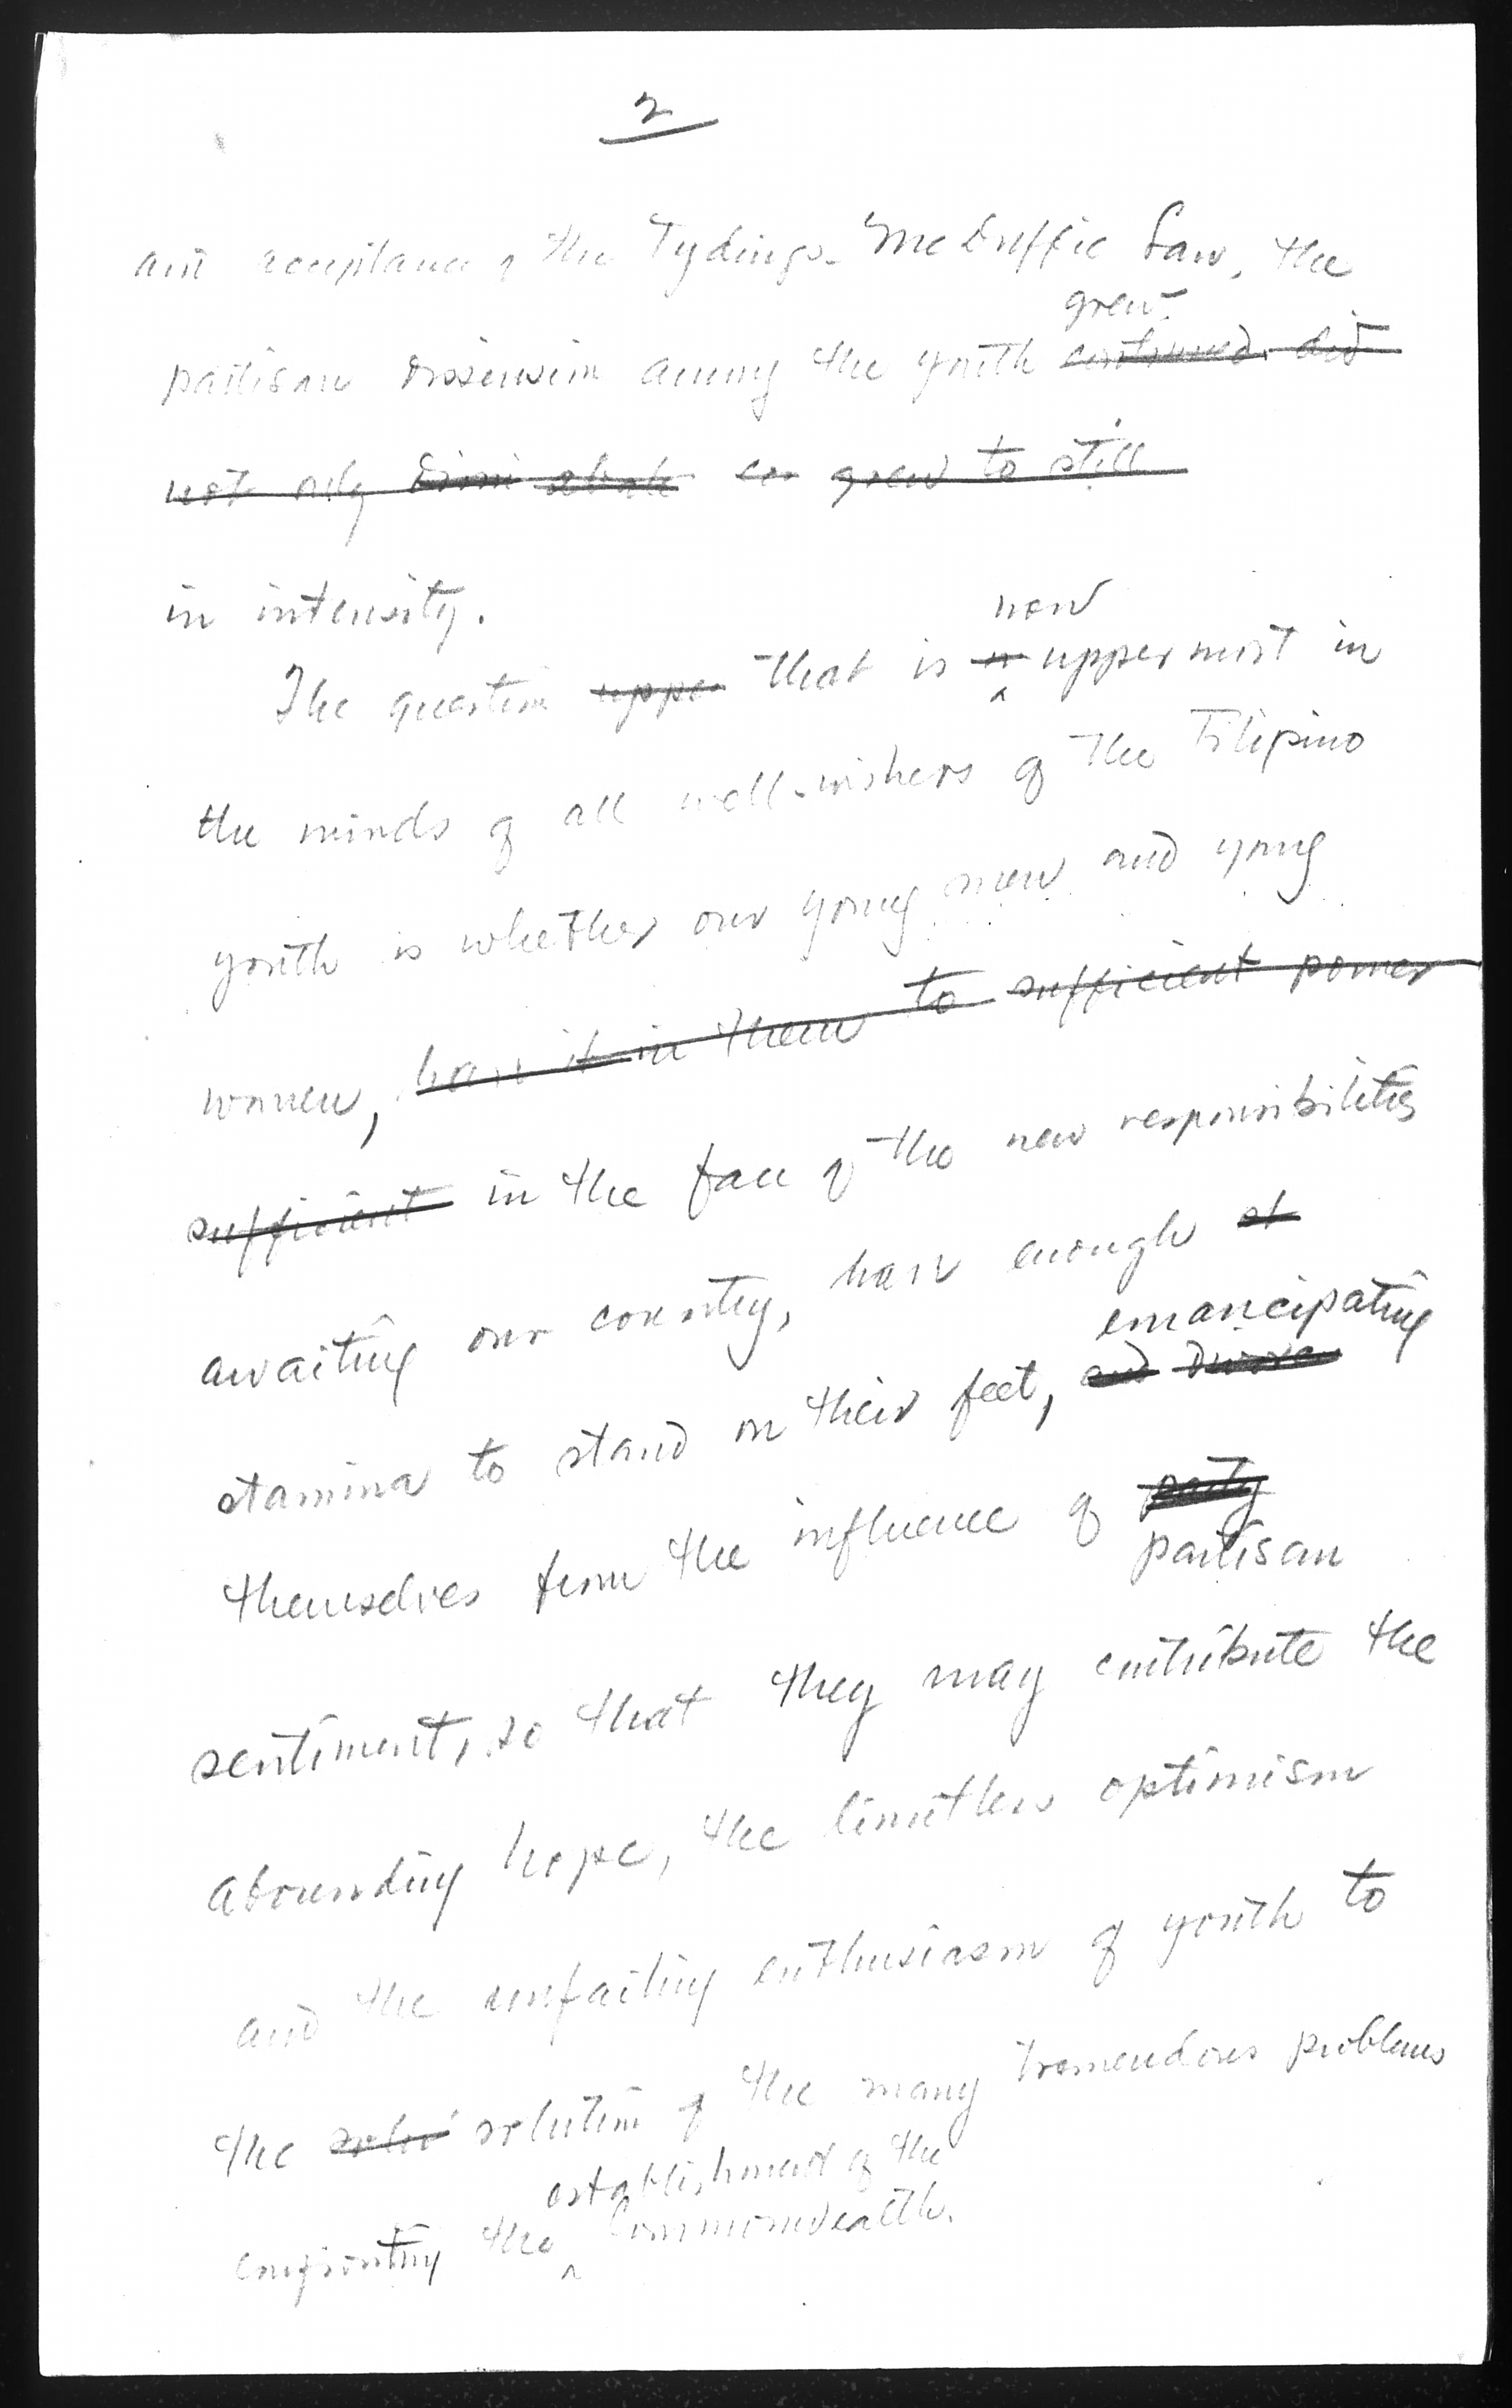 2
and acceptance of the Tydings-McDuffie Law, the
grew
partisan dissension among the youth continued did
not only dimi abate grew to still
in intensity.
now
The question uppe that is n uppermost in
the minds of all well-wishers of the Filipino
youth is whether our young men and young
women, have it in them to sufficient power
sufficient in the face of the new responsibilities
awaiting our country, have enough st
emancipating
stamina to stand on their feet, and
themselves from the influence of party
partisan
sentiment, so that they may contribute the
abounding hope, the limitless optimism
and the unfailing enthusiasm of youth to
the solui solution of the many tremendous problems
establishment of the
confronting the ^ Commonwealth.